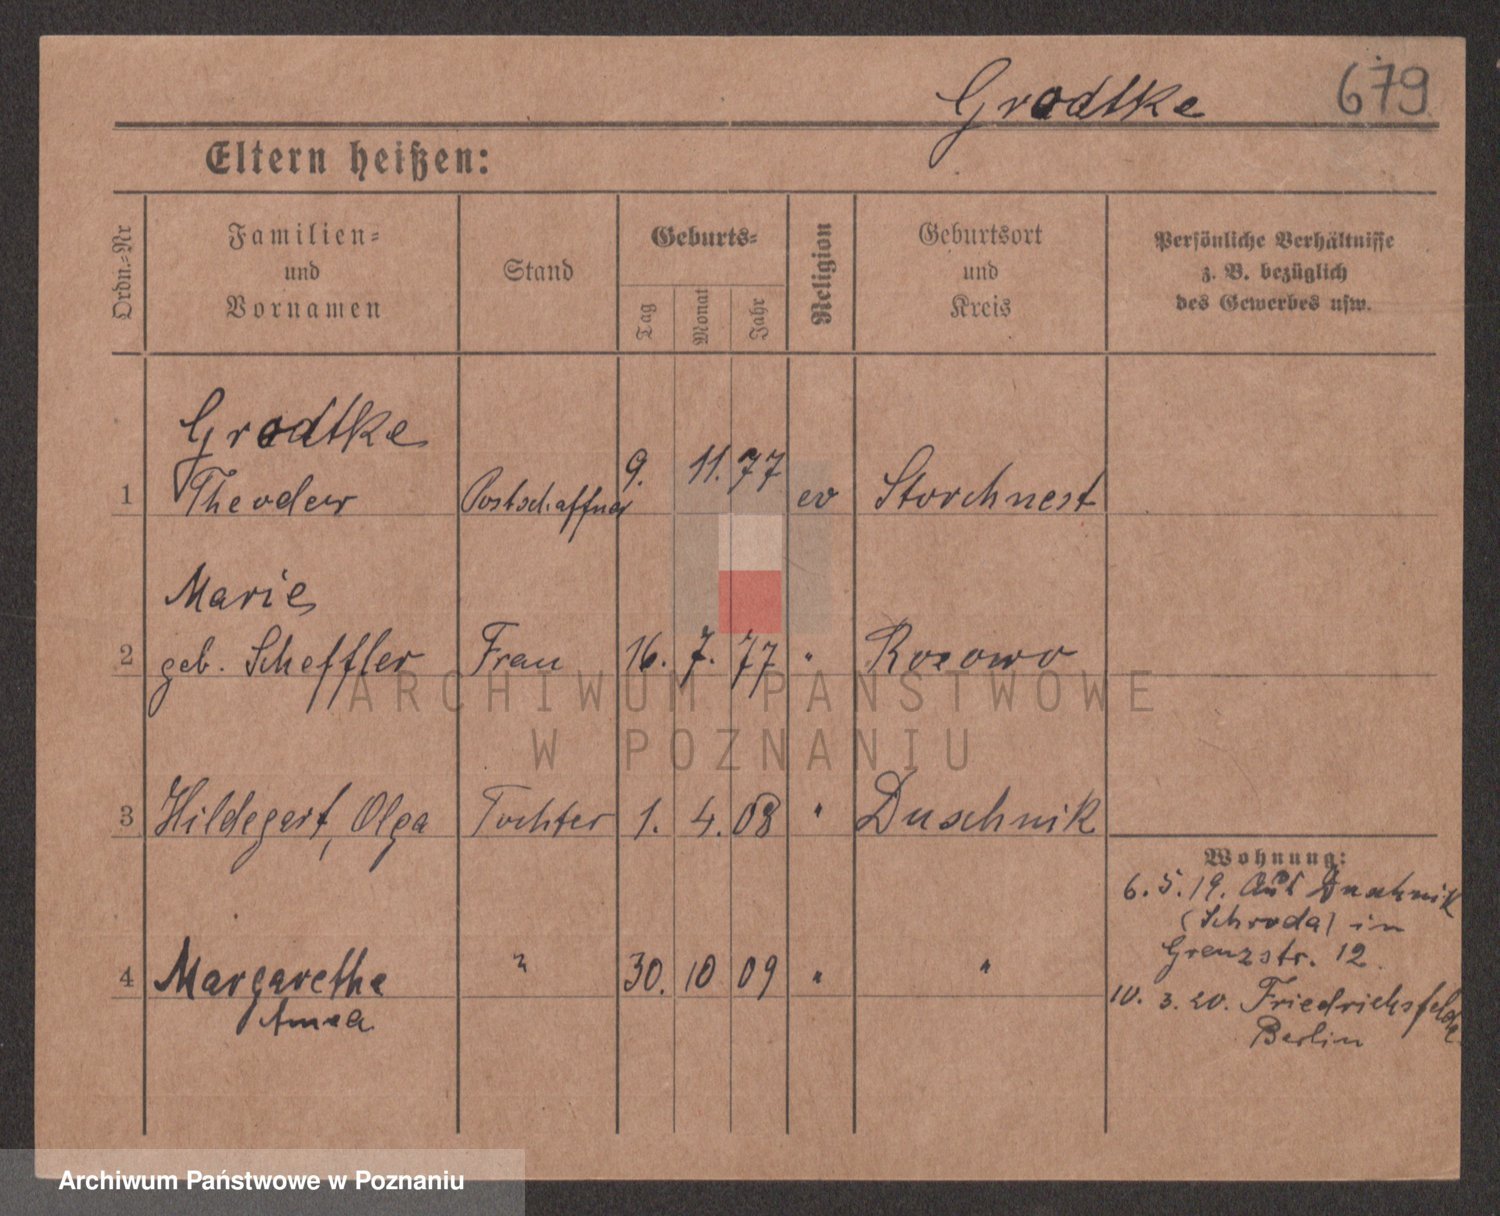 Grodtke 679
Eltern heißen:
Ordn.-Nr
Familien-
und
Vornamen
Stand
Geburts-
Tag
Monat
Jahr
Religion
Geburtsort
und
Kreis
Persönliche Verhältnisse
z. B. bezüglich
des Gewerbes usw.
Grodtke
1 Theodor Postschaffner 9. 11. 77 ev Storchnest
Marie
2 geb. Scheffler Frau 16. 7. 77 " Rosowo
3 Hildegart, Olga Tochter 1. 4. 08 " Duschnik
4 Margarethe " 30. 10 09 " "
Wohnung:
6. 5. 19. Aus Duschnik
(Schroda) in
Grenzstr. 12.
10. 3. 20. Friedrichsfelde
Berlin
ARCHIWUM PAŃSTWOWE
W POZNANIU
Archiwum Państwowe w Poznaniu